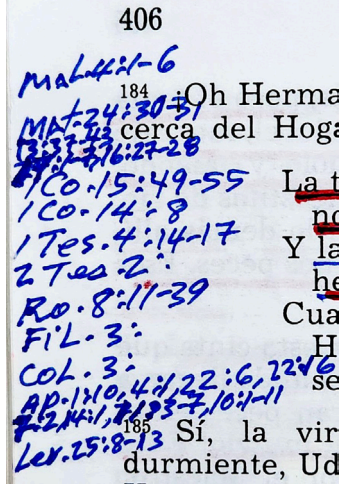 406
Mal.4:1-6
Mat.24:30-31
16:27-28
1 Co.15:49-55
1 Co.14:8
1 Tes.4:14-17
2 Tes.2:
Ro.8:11-39
FiL.3:
COL.3:
AP.1:10, 4:1, 22:6, 22:16
14:1, 10:1-11
Lev.25:8-13
184 ¡Oh Herma
cerca del Hoga
La t
no
Y la
he
Cua
H
se
185 Sí, la vir
durmiente, Ud